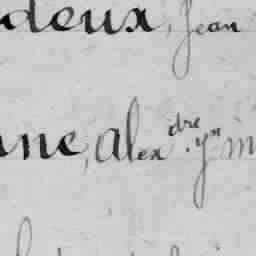 deux, Jean
ne, Alexdre. yn m